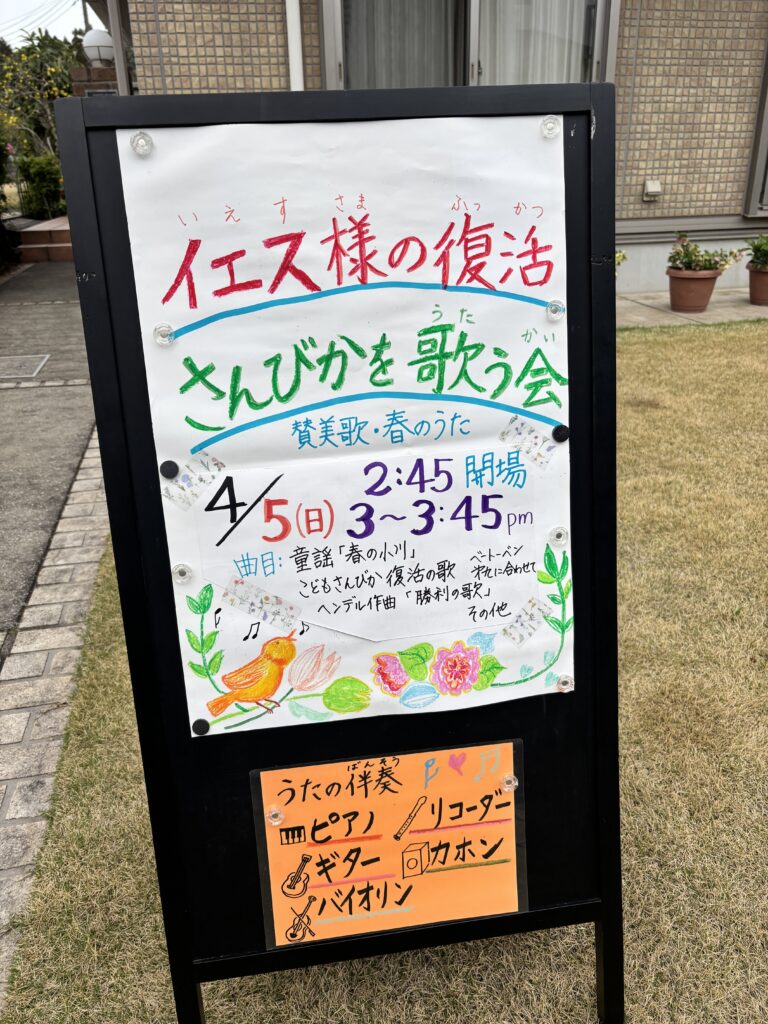 いえす さま ふっ かつ
イエス様の復活
うた かい
さんびかを歌う会
賛美歌・春のうた
4/5(日) 2:45 開場
3～3:45pm
曲目: 童謡「春の小川」
こどもさんびか 復活の歌 ベートーベン 第九に合わせて
ヘンデル作曲「勝利の歌」
その他
ばんそう
うたの伴奏
ピアノ
リコーダー
ギター
カホン
バイオリン